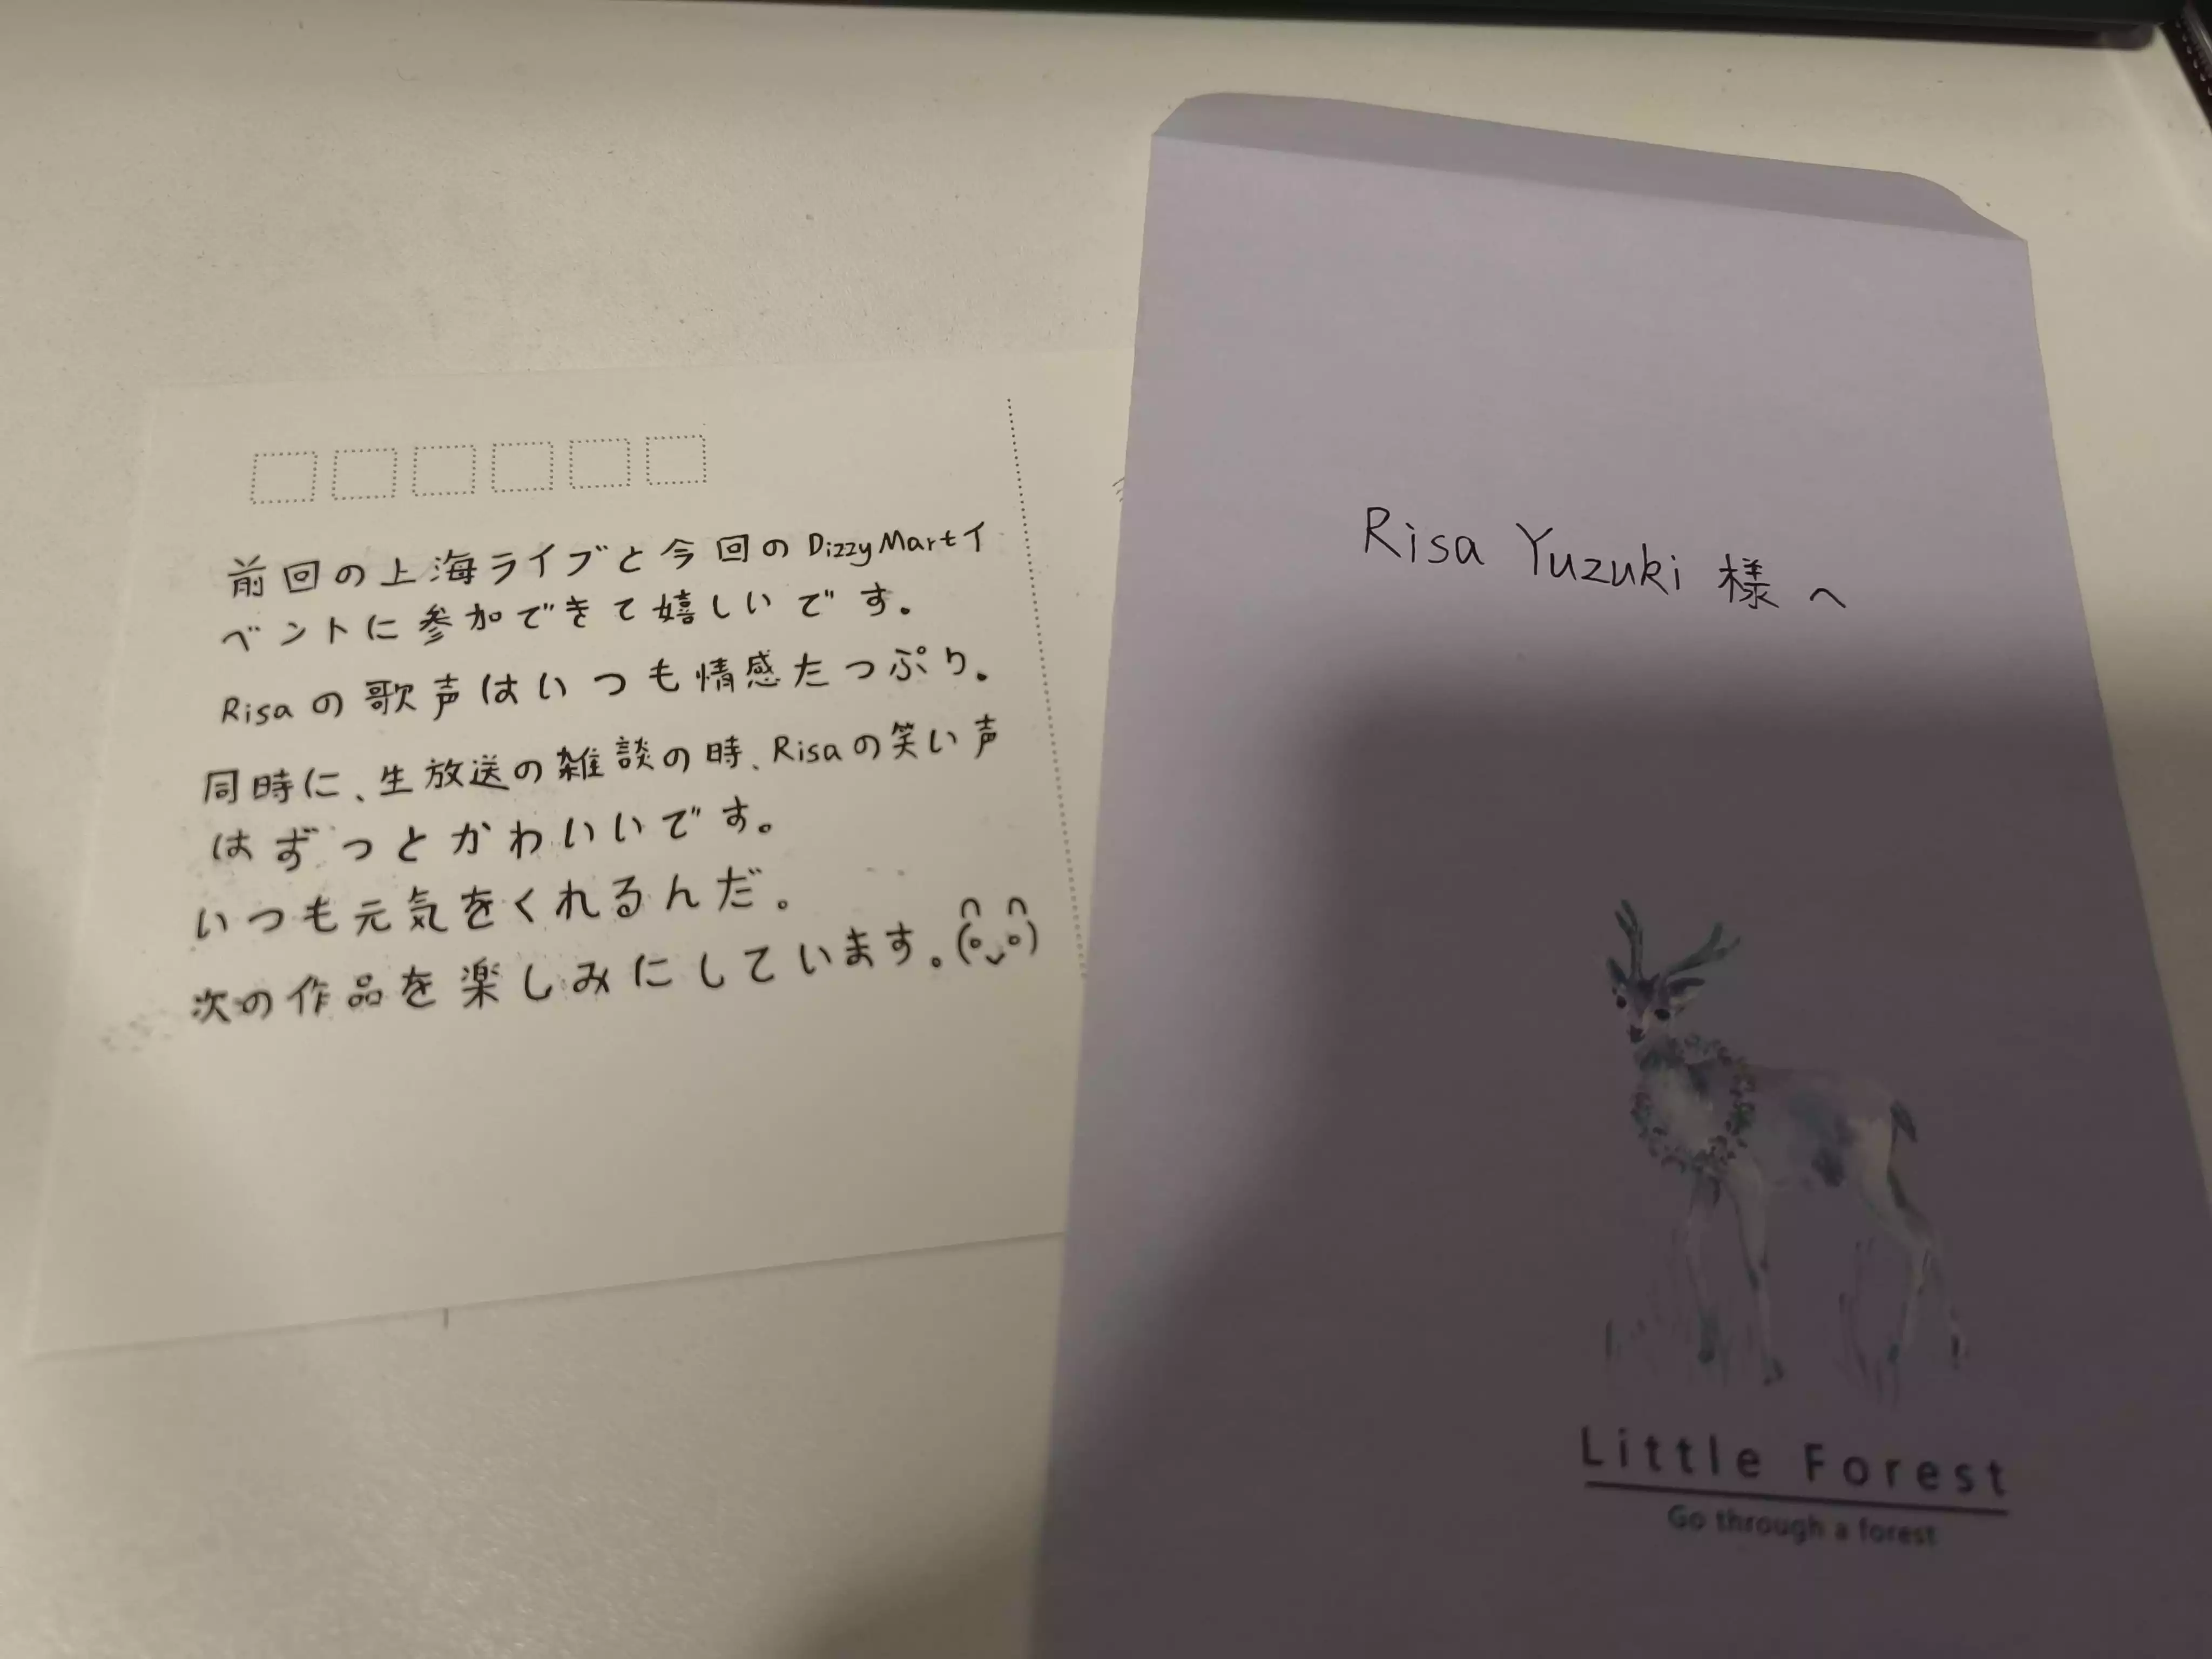 前回の上海ライブと今回のDizzyMartイ
ベントに参加できて嬉しいです。
Risaの歌声はいつも情感たっぷり。
同時に、生放送の雑談の時、Risaの笑い声
はずっとかわいいです。
いつも元気をくれるんだ。
次の作品を楽しみにしています。
Risa Yuzuki 様へ
Little Forest
Go through a forest